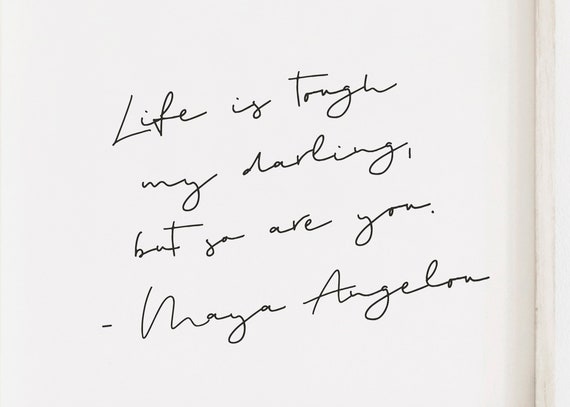 Life is tough
my darling,
but so are you.
- Maya Angelou